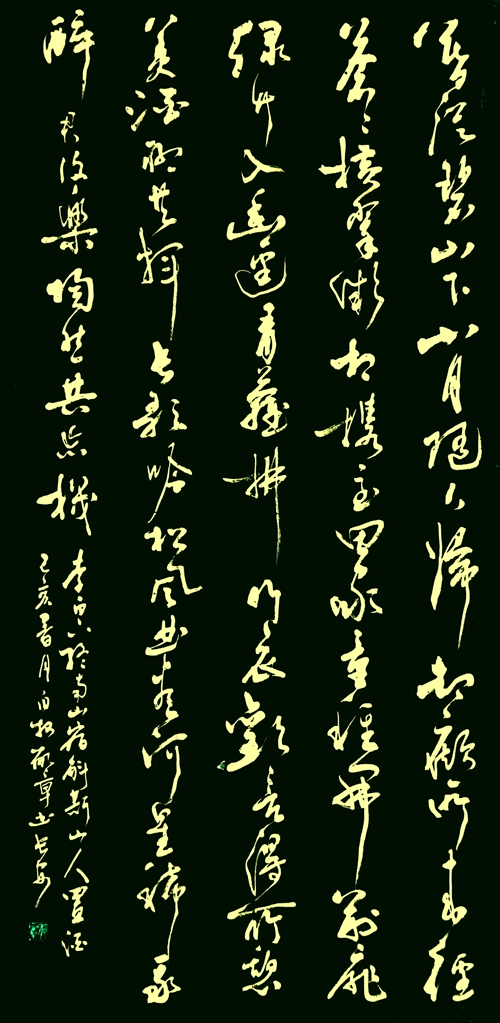 暮從碧山下山月隨人歸却顧所來徑
蒼蒼橫翠微相攜至田家童稚開荊扉
綠竹入幽逕青蘿拂行衣歡言得所憩
美酒聊共揮長歌吟松風曲盡河星稀我
醉君復樂陶然共忘機
李白下終南山宿斛斯山人置酒
己亥暑月白松草書長安